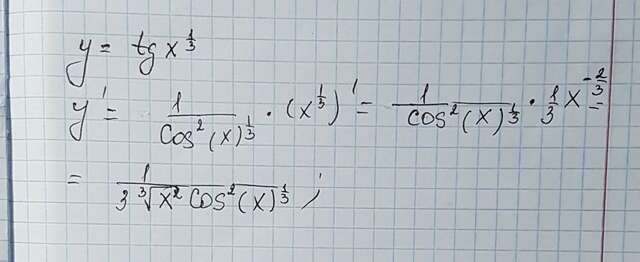 y = tg x^{\frac{1}{3}}
y' = \frac{1}{cos^2(x)^{\frac{1}{3}}} \cdot (x^{\frac{1}{3}})' = \frac{1}{cos^2(x)^{\frac{1}{3}}} \cdot \frac{1}{3} x^{-\frac{2}{3}} =
= \frac{1}{3 \sqrt[3]{x^2} cos^2(x)^{\frac{1}{3}}} ;